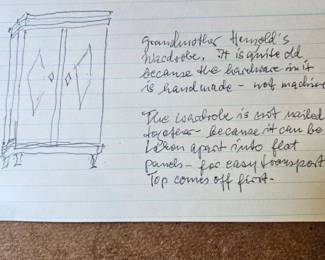 Grandmother Hensold's
Wardrobe. It is quite old,
because the hardware in it
is handmade - not machine
The wardrobe is not nailed
together - because it can be
taken apart into flat
panels - for easy transport
Top comes off first -